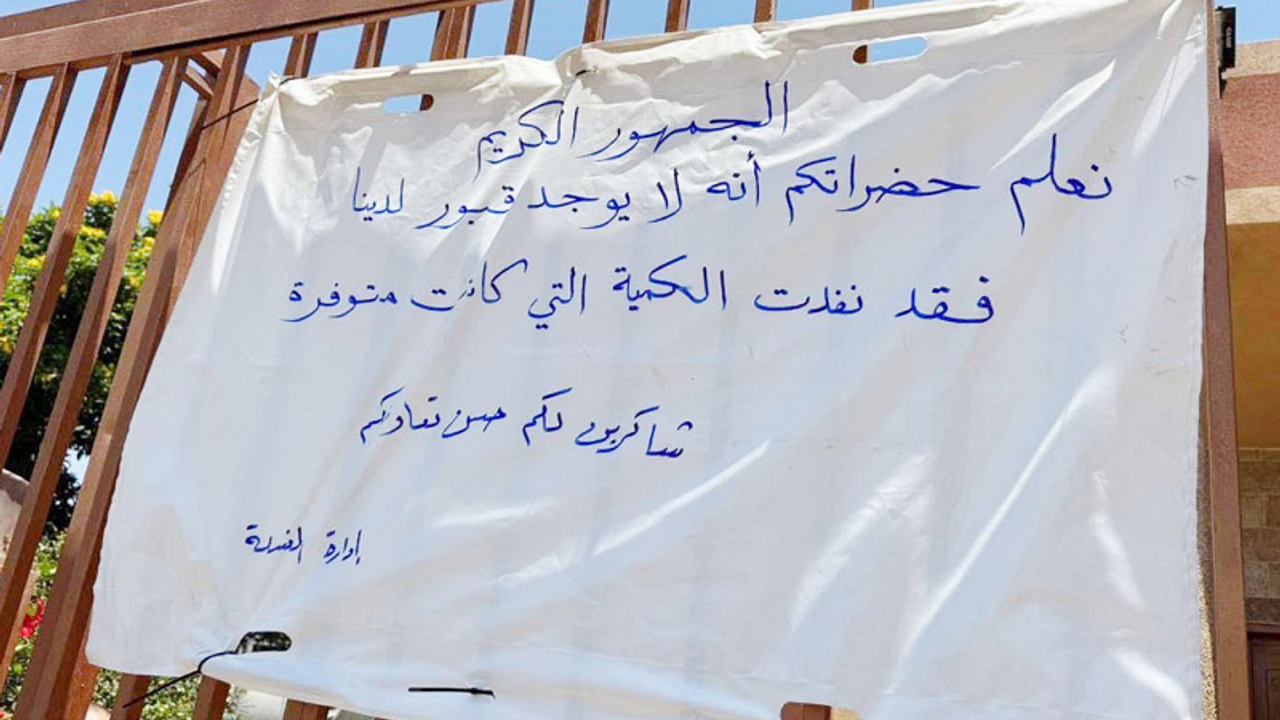 الجمهور الكريم
نعلم حضراتكم أنه لا يوجد قبور لدينا
فقد نفذت الكمية التي كانت متوفرة
شاكرين لكم حسن تعاونكم
إدارة